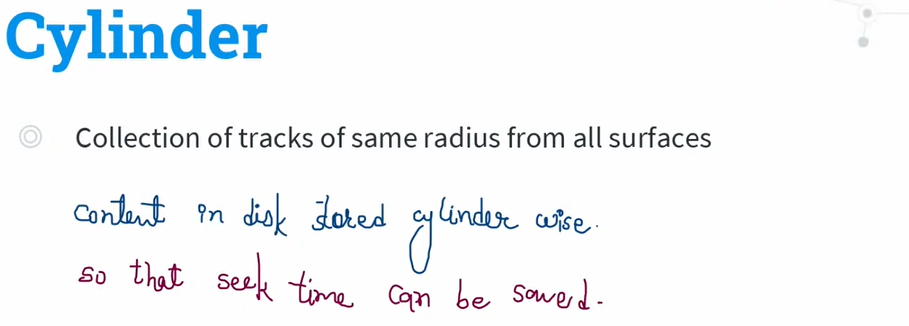 Cylinder
Collection of tracks of same radius from all surfaces
content in disk stored cylinder wise.
so that seek time can be saved.